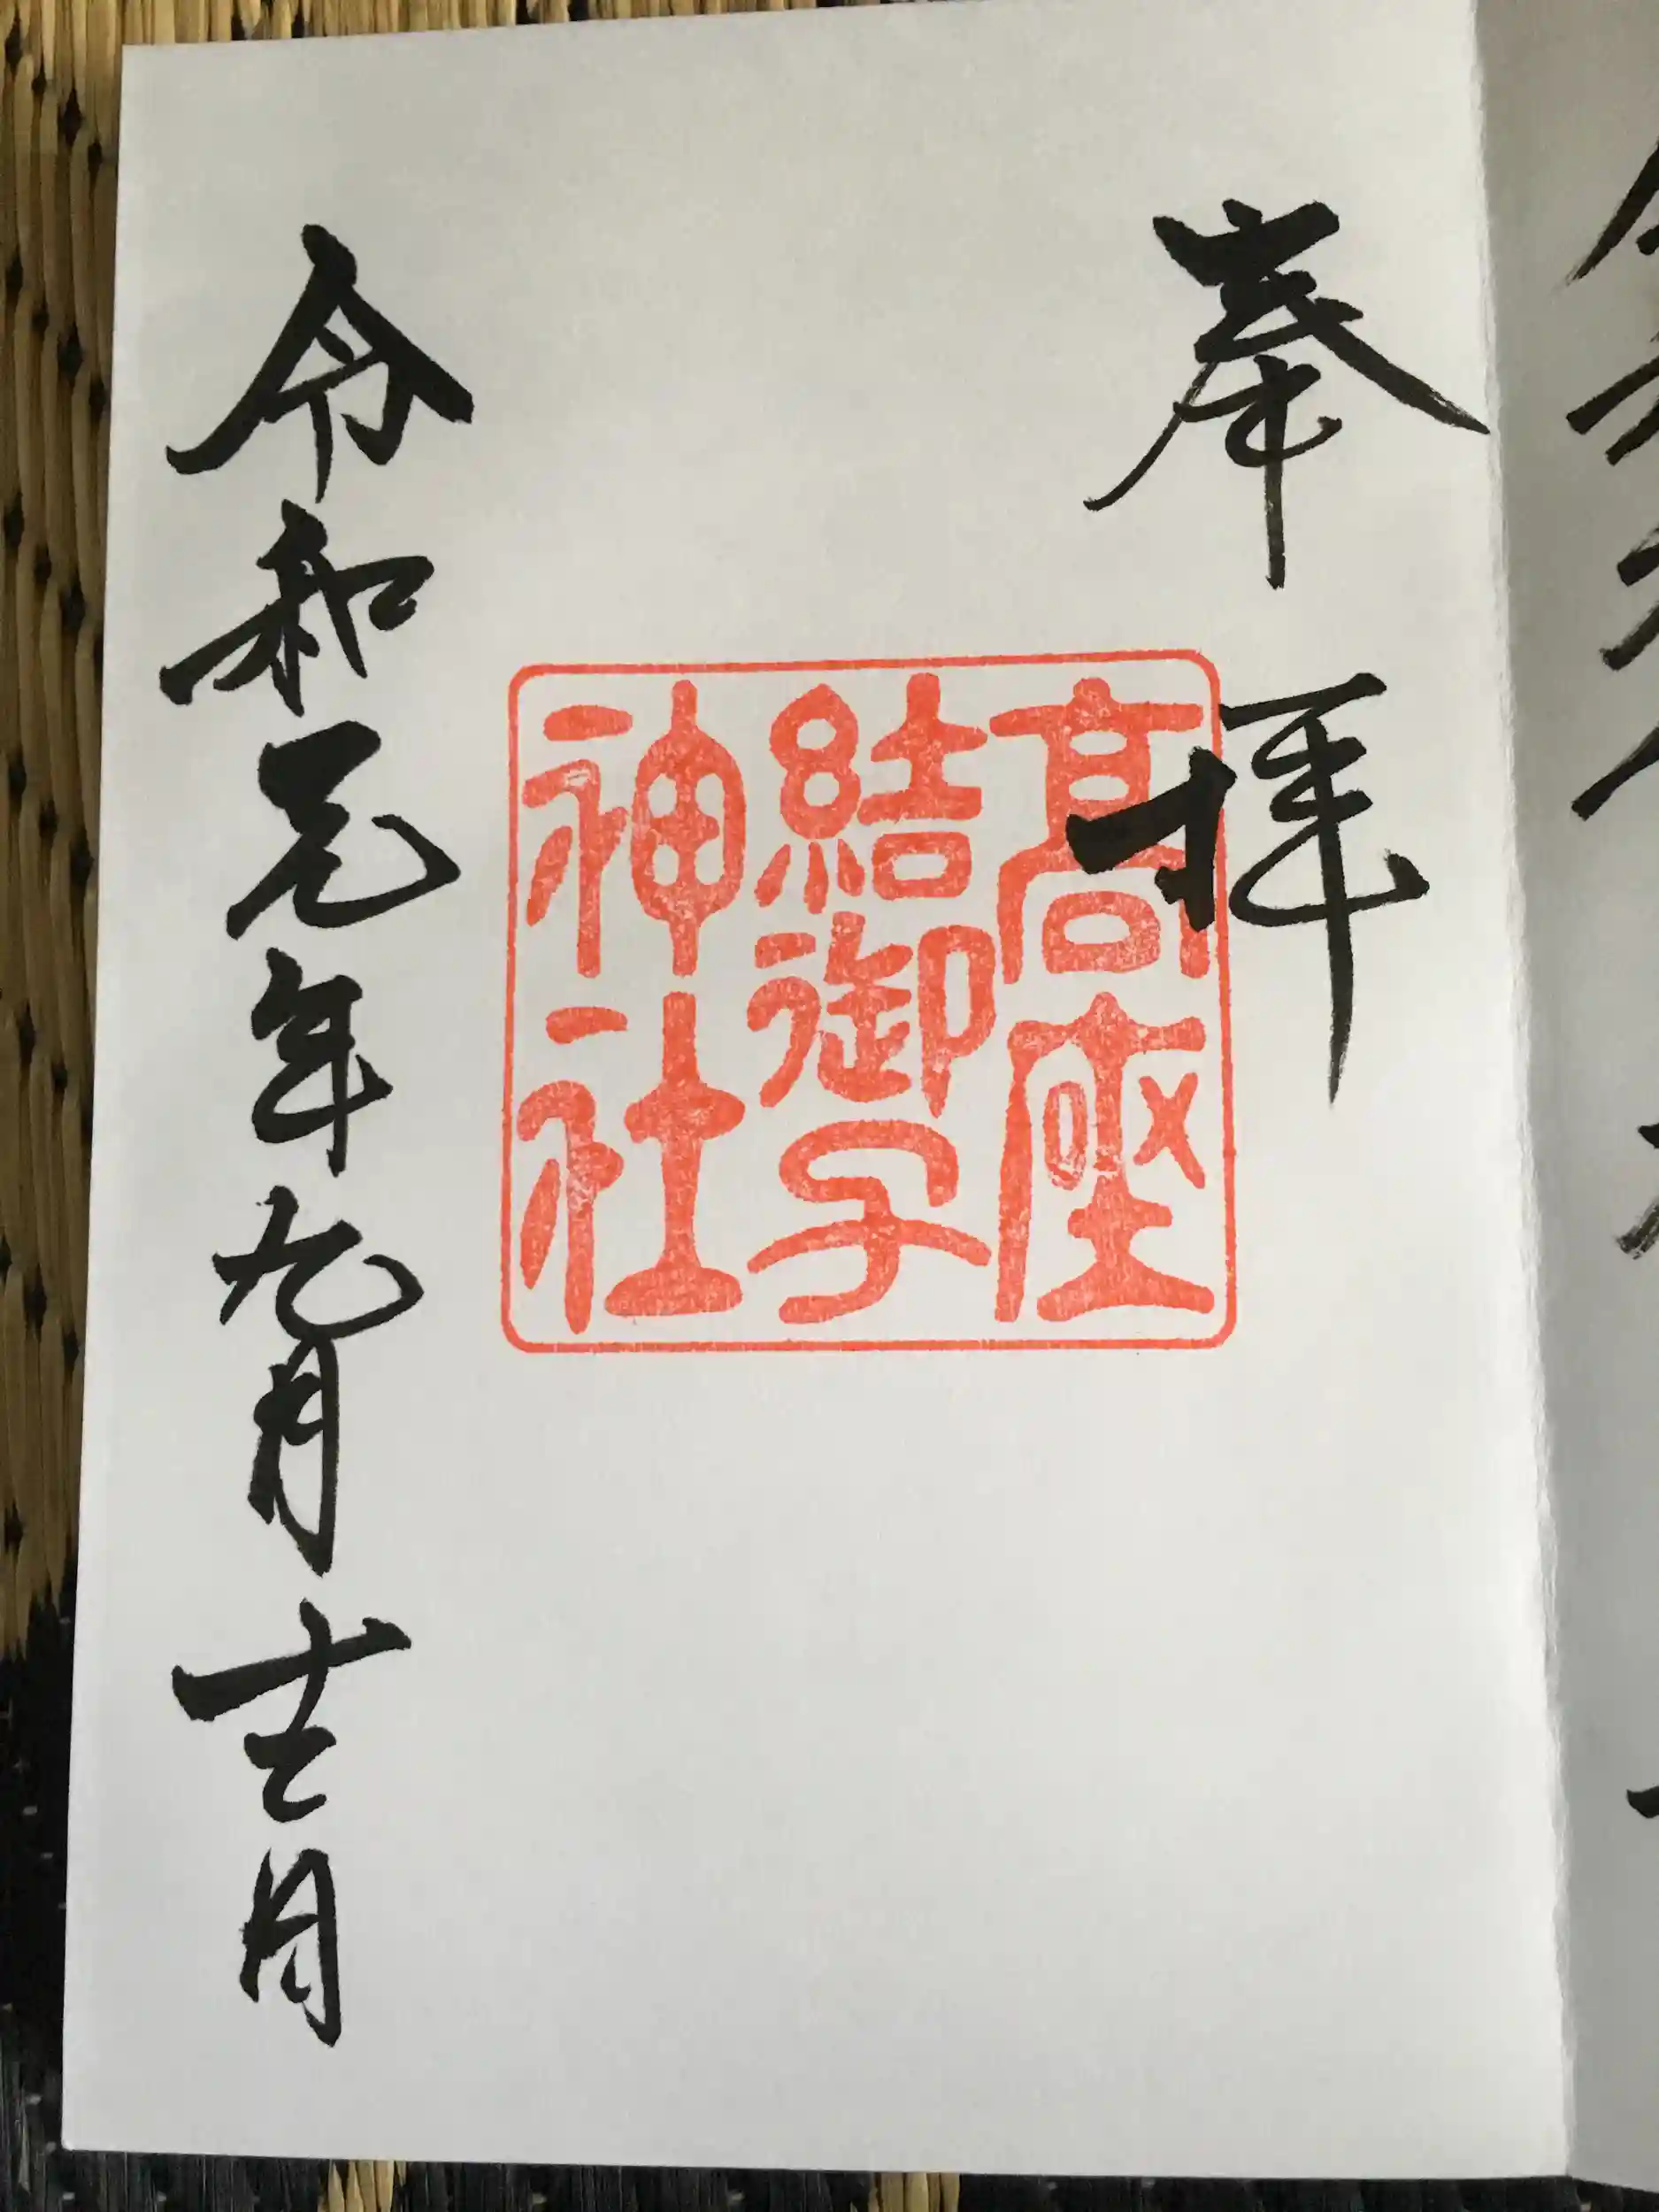 奉拝
高座
結御子
神社
令和元年九月日